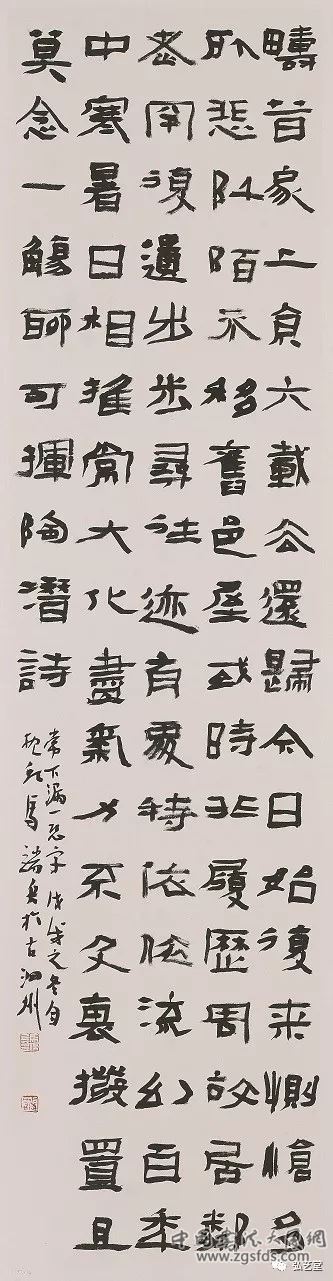 疇昔家上京六載去還歸今日始復来惻愴多
所悲阡陌不移舊邑屋或時非履歷周故居鄰
老罕復遺步步尋往迹有處特依依流幻百年
中寒暑日相推常大化盡氣力不及衰撥置且
莫念一觴聊可揮陶潛詩
常下漏一恐字 戊戌之冬月
馬端 於古泗州
www.zgsfds.com